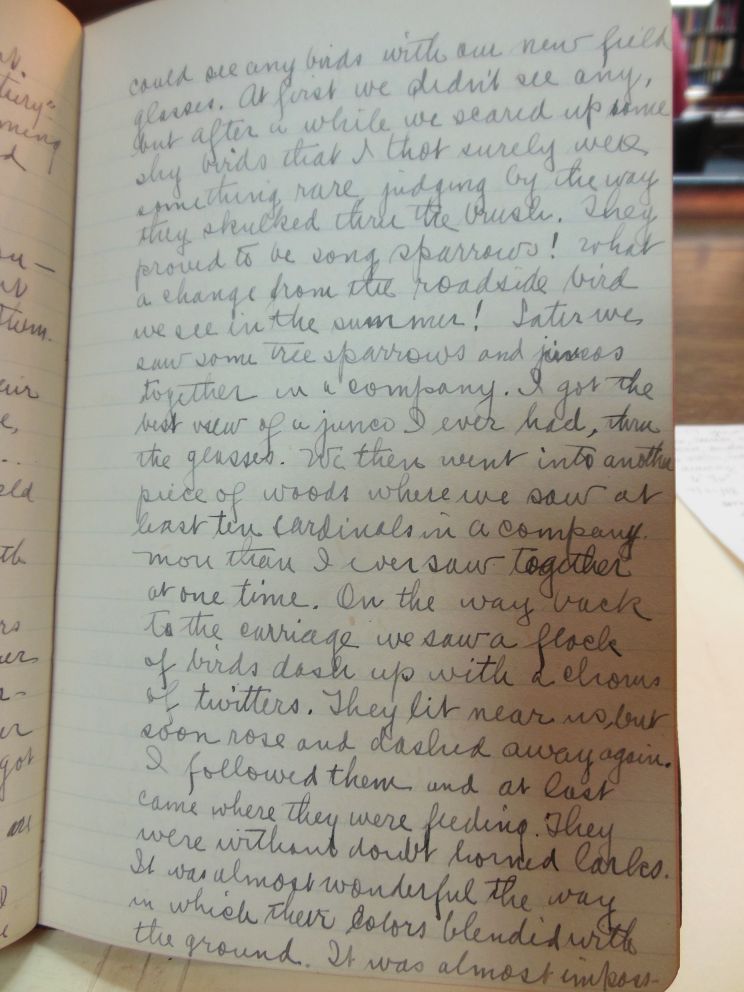 could see any birds with our new field
glasses. At first we didn't see any,
but after a while we scared up some
shy birds that I thot surely were
something rare judging by the way
they skulked thru the brush. They
proved to be song sparrows! What
a change from the roadside bird
we see in the summer! Later we
saw some tree sparrows and juncos
together in a company. I got the
best view of a junco I ever had, thru
the glasses. We then went into another
piece of woods where we saw at
least ten cardinals in a company.
more than I ever saw together
at one time. On the way back
to the carriage we saw a flock
of birds dash up with a chorus
of twitters. They lit near us, but
soon rose and dashed away again.
I followed them and at last
came where they were feeding. They
were without doubt horned larks.
It was almost wonderful the way
in which their colors blended with
the ground. It was almost imposs-